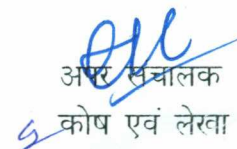 अपर संचालक
कोष एवं लेखा